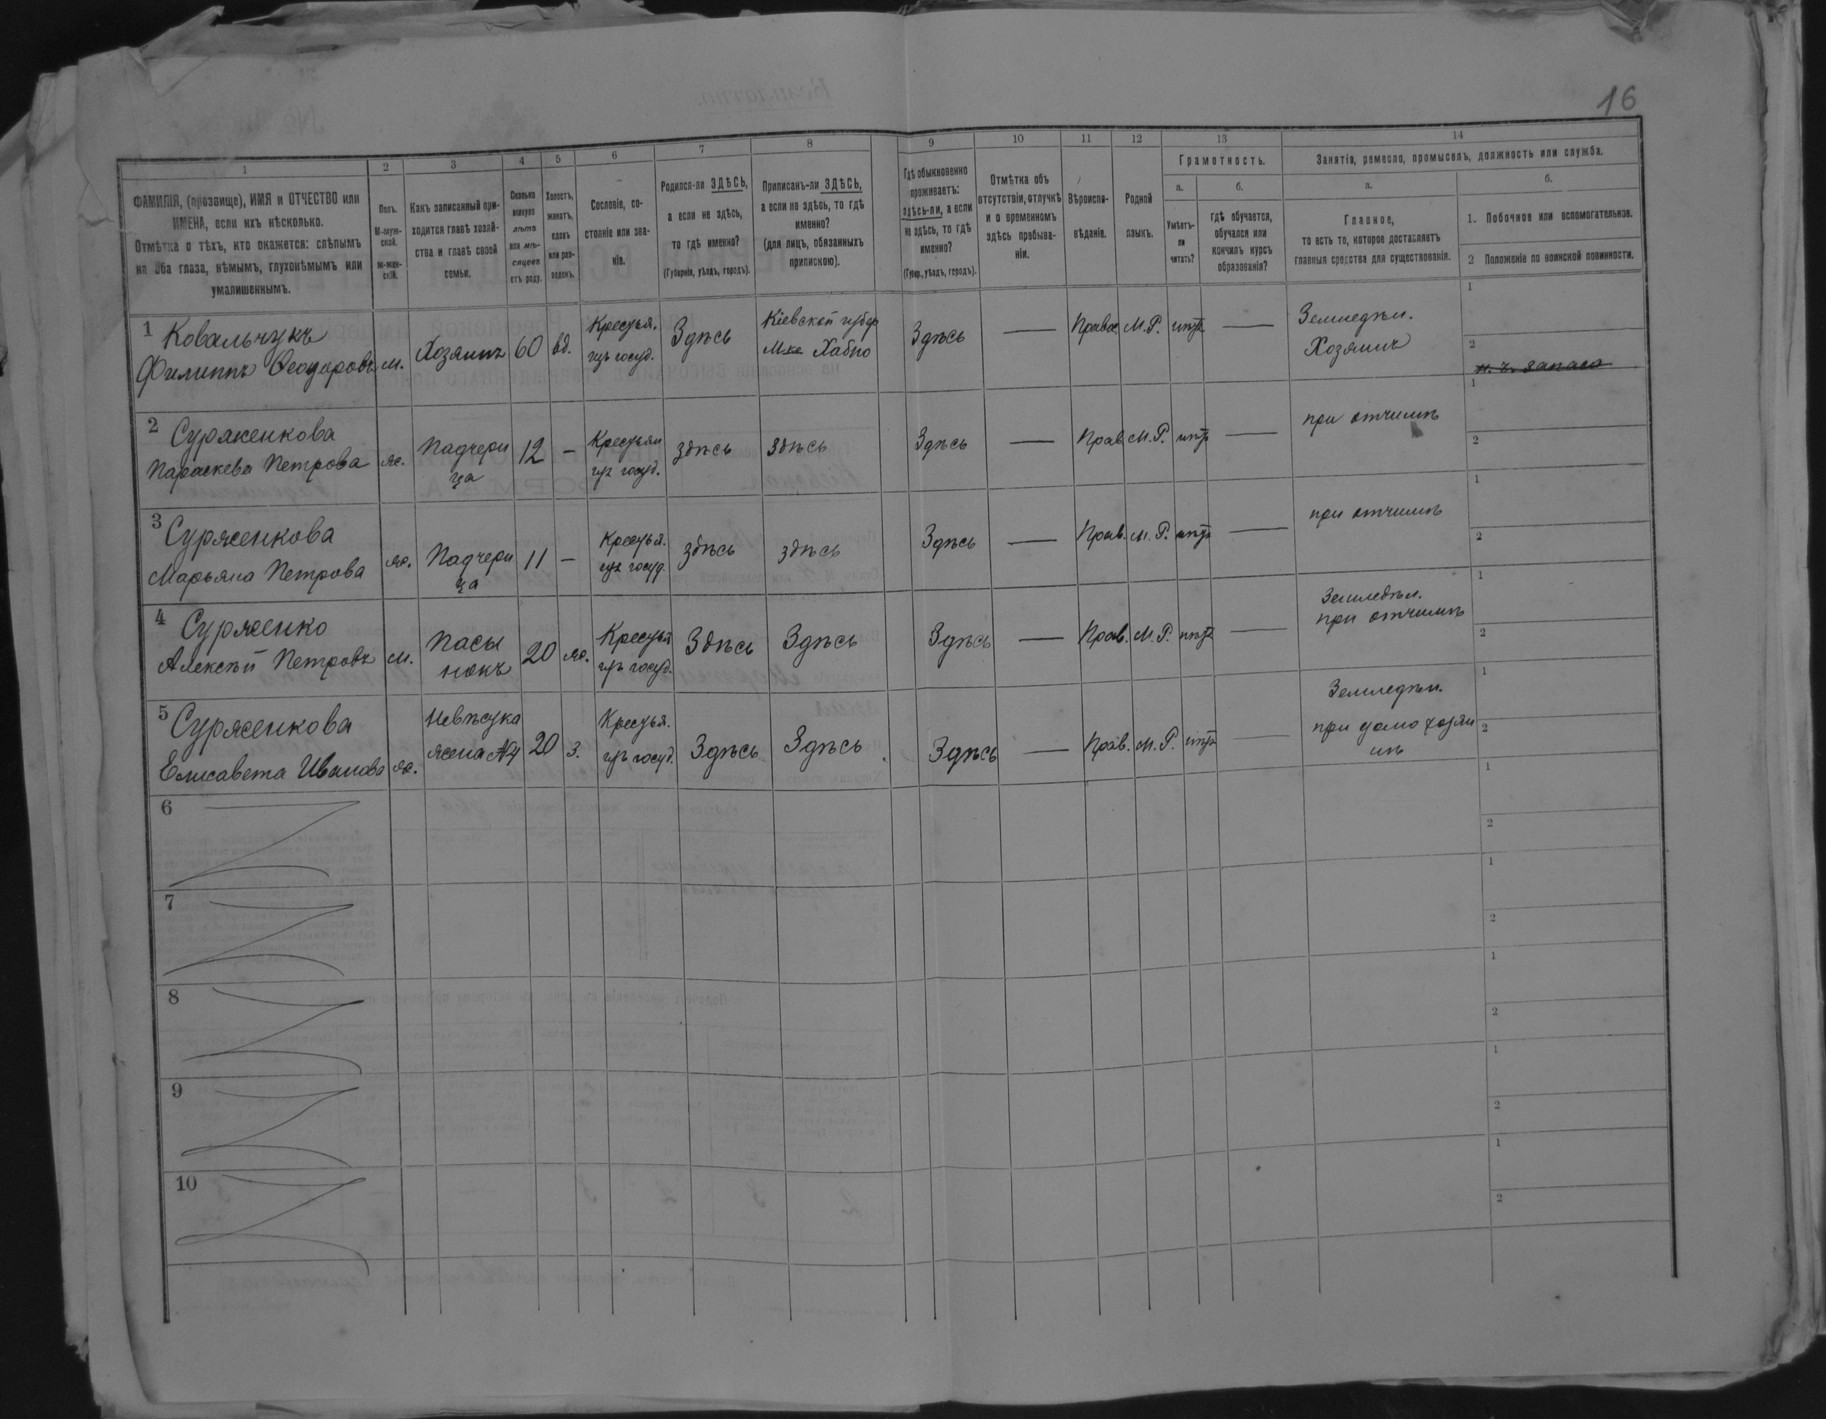 16
1
2
3
4
5
6
7
8
9
10
11
12
13
14
ФАМИЛІЯ, (прозвище), ИМЯ и ОТЧЕСТВО или
ИМЕНА, если ихъ нѣсколько.
Отмѣтка о тѣхъ, кто окажется: слѣпымъ
на оба глаза, нѣмымъ, глухонѣмымъ или
умалишеннымъ.
Полъ.
М-муж-
ской.
Ж-жен-
скій.
Какъ записанный при-
ходится главѣ хозяй-
ства и главѣ своей
семьи.
Сколько
минуло
лѣтъ
или мѣ-
сяцевъ
отъ роду.
Холостъ,
женатъ,
вдовъ
или раз-
веденъ.
Сословіе, со-
стояніе или зва-
ніе.
Родился-ли ЗДѢСЬ,
а если не здѣсь,
то гдѣ именно?
(Губернія, уѣздъ, городъ).
Приписанъ-ли ЗДѢСЬ,
а если не здѣсь, то гдѣ
именно?
(для лицъ, обязанныхъ
припискою).
Гдѣ обыкновенно
проживаетъ:
здѣсь-ли, а если
не здѣсь, то гдѣ
именно?
(Губер., уѣздъ, городъ).
Отмѣтка объ
отсутствіи, отлучкѣ
и о временномъ
здѣсь пребыва-
ніи.
Вѣроиспо-
вѣданіе.
Родной
языкъ.
Грамотность.
а.
б.
Умѣетъ-
ли
читать?
гдѣ обучается,
обучался или
кончилъ курсъ
образованія?
Занятія, ремесло, промыселъ, должность или служба.
а.
б.
Главное,
то есть то, которое доставляетъ
главныя средства для существованія.
1. Побочное или вспомогательное.
2 Положеніе по воинской повинности.
1 Ковальчукъ
Филиппъ Ѳеодоровъ м. Хозяинъ 60 вд. Крестья. изъ госуд. Здѣсь Кіевской губер М-ко Хабно Здѣсь — Правос М.Р. нѣтъ — Земледѣл. Хозяинъ
1
2
н. ч. запаса
2 Суряженкова
Параскева Петрова ж. Падчери ца 12 — Крестьян изъ госуд. здѣсь здѣсь Здѣсь — Прав М.Р. нѣтъ — при отчимѣ
1
2
3 Суряженкова
Марьяна Петрова ж. Падчери ца 11 — Крестья. изъ госуд. здѣсь здѣсь Здѣсь — Прав. М.Р. нѣтъ — при отчимѣ
1
2
4 Суряженко
Алексѣй Петровъ м. Пасы нокъ 20 ж. Крестья изъ госуд. Здѣсь Здѣсь Здѣсь — Прав. М.Р. нѣтъ — Земледѣл. при отчимѣ
1
2
5 Суряженкова
Елисавета Иванова ж. Невѣстка жена №4 20 з. Крестья. изъ госуд. Здѣсь Здѣсь Здѣсь — Прав. М.Р. нѣтъ — Земледѣл. при домохозяи нѣ
1
2
6
1
2
7
1
2
8
1
2
9
1
2
10
1
2